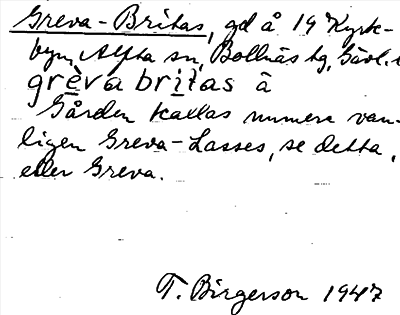 Greva-Britas, gd å 14 Kyrk-
byn, Alfta sn, Bollnäs tg, Gävl. l
grèva britas å
Gården kallas numera van-
ligen Greva-Lasses, se detta,
eller Greva.
T. Birgerson 1947